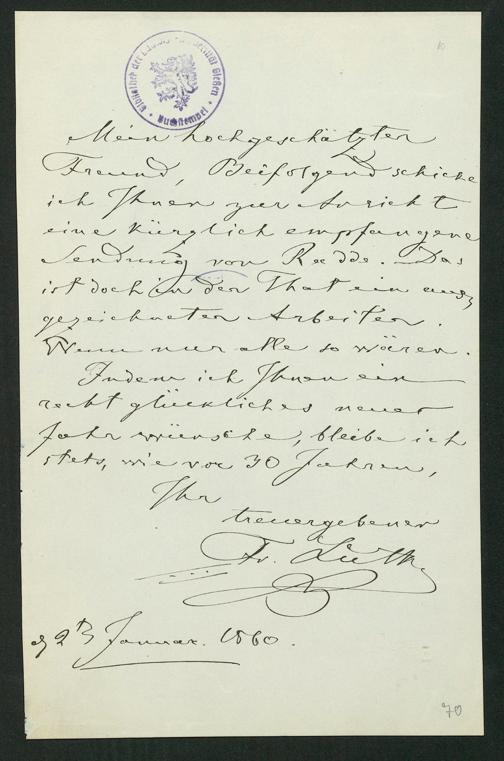 10
Bibliothek der Ludwigs-Universität Gießen
Buchstempel
Mein hochgeschätzter
Freund, Beifolgend schicke
ich Ihnen zur Ansicht
eine kürzlich empfangene
Sendung von Radde. Das
ist doch in der That ein aus-
gezeichneter Arbeiter.
Wenn nur alle so wären.
Indem ich Ihnen ein
recht glückliches neues
Jahr wünsche, bleibe ich
stets, wie vor 30 Jahren,
Ihr
treuergebener
Fr. Lütke
Januar. 1860.
70